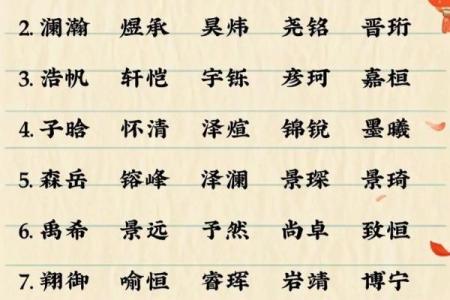 2. 澜瀚 煜承 昊炜 尧铭 晋珩
3. 浩帆 轩恺 宇铄 彦珂 嘉桓
4. 子晗 怀清 泽煊 锦锐 墨曦
5. 森岳 镕峰 泽澜 景琛 景琦
6. 禹希 景远 予然 尚卓 致恒
7. 翔御 喻恒 睿珲 岩靖 博宁